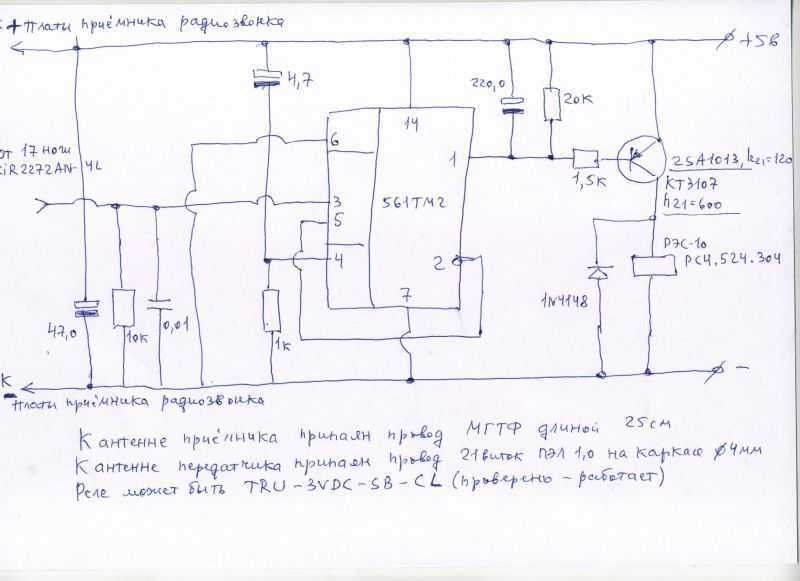 + Платы приёмника радиозвонка
+5В
4,7
220,0
20к
14
6
1
от 17 ножки
2SA1013, h21=120
1,5к
КТ3107
h21=600
3
561ТМ2
5
РЭС-10
РС4.524.304
4
2
1N4148
7
47,0
10к
0,01
1к
К
-
- Платы приёмника радиозвонка
К антенне приёмника припаян провод МГТФ длиной 25см
К антенне передатчика припаян провод 21 виток ПЭЛ 1,0 на каркасе ф4мм
Реле может быть TRU-3VDC-SB-CL (проверено - работает)